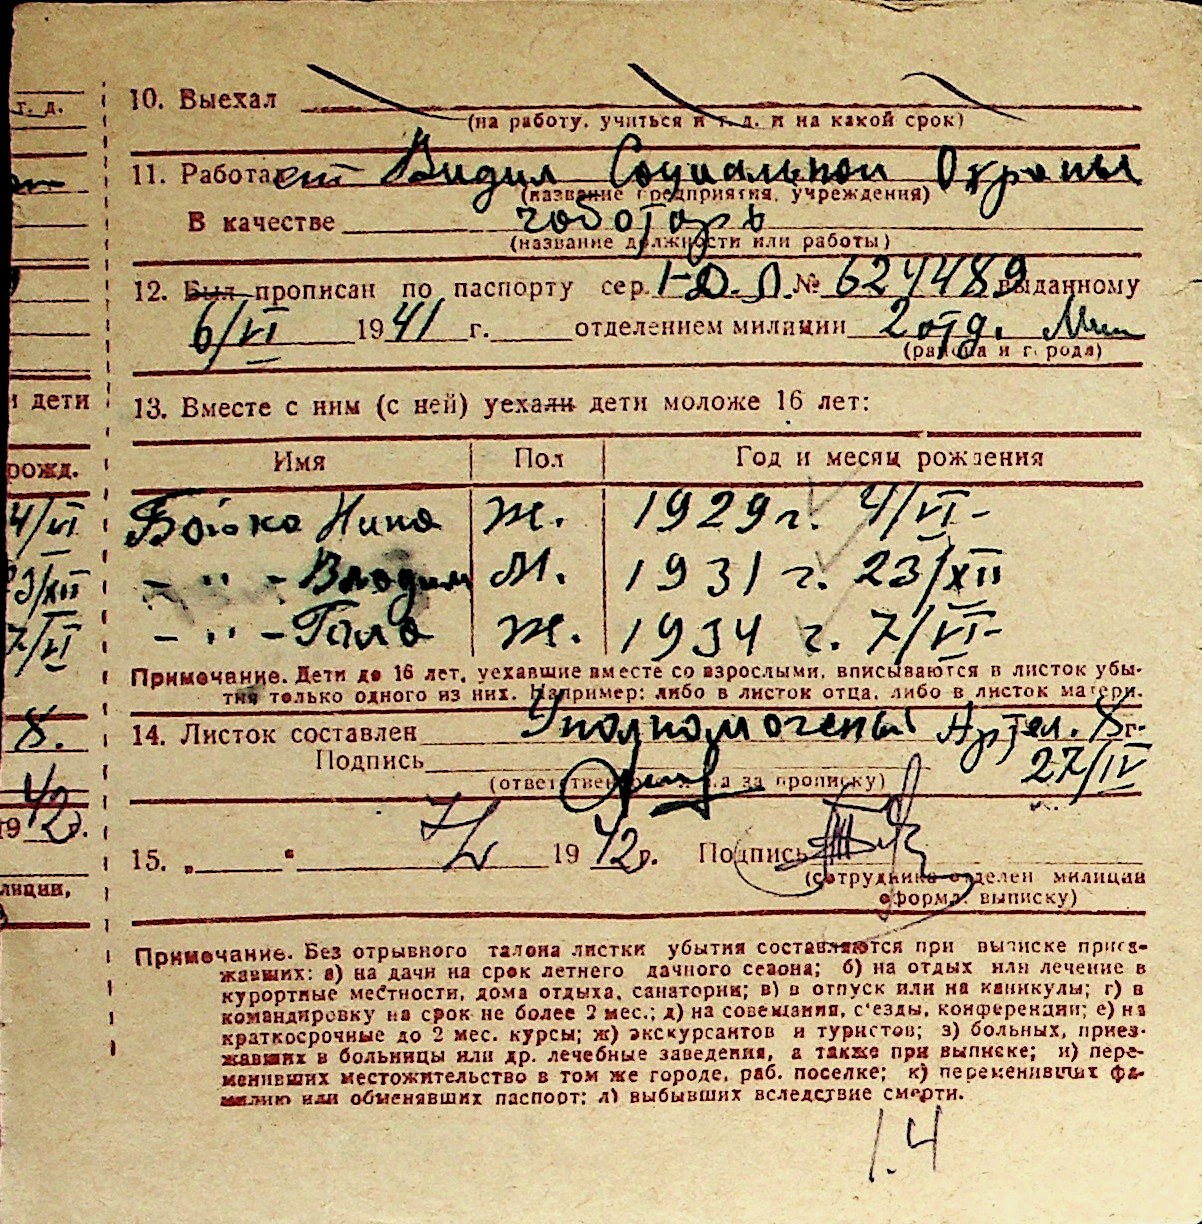 т. д.
10. Выехал
(на работу, учиться и т. д. и на какой срок)
11. Работает Видил Социальной Охроны
(название предприятия, учреждения)
В качестве чоботарь
(название должности или работы)
12. Был прописан по паспорту сер. № 624489 выданному
6/VI 1941 г. отделением милиции 2 отд.
(района и города)
13. Вместе с ним (с ней) уехали дети моложе 16 лет:
и дети
рожд.
Имя Пол Год и месяц рождения
4/VI Бойко Нина Ж. 1929 г. 4/VI-
23/XII - " - Владим М. 1931 г. 23/XII
7/VI - " - Гала Ж. 1934 г. 7/VI-
Примечание. Дети до 16 лет, уехавшие вместе со взрослыми, вписываются в листок убы-
тия только одного из них. Например: либо в листок отца, либо в листок матери.
14. Листок составлен Уполномочены Артел.
Подпись 27/IV
(ответственного за прописку)
1942 г.
15. „ “ 1942 г. Подпись
(сотрудника отделен милиции
оформл. выписку)
лиции,
Примечание. Без отрывного талона листки убытия составляются при выписке приез-
жавших: а) на дачи на срок летнего дачного сезона; б) на отдых или лечение в
курортные местности, дома отдыха, санатории; в) в отпуск или на каникулы; г) в
командировку на срок не более 2 мес.; д) на совещания, с'езды, конференции; е) на
краткосрочные до 2 мес. курсы; ж) экскурсантов и туристов; з) больных, приез-
жавших в больницы или др. лечебные заведения, а также при выписке; и) пере-
менивших местожительство в том же городе, раб. поселке; к) переменивших фа-
милию или обменявших паспорт; л) выбывших вследствие смерти.
1.4